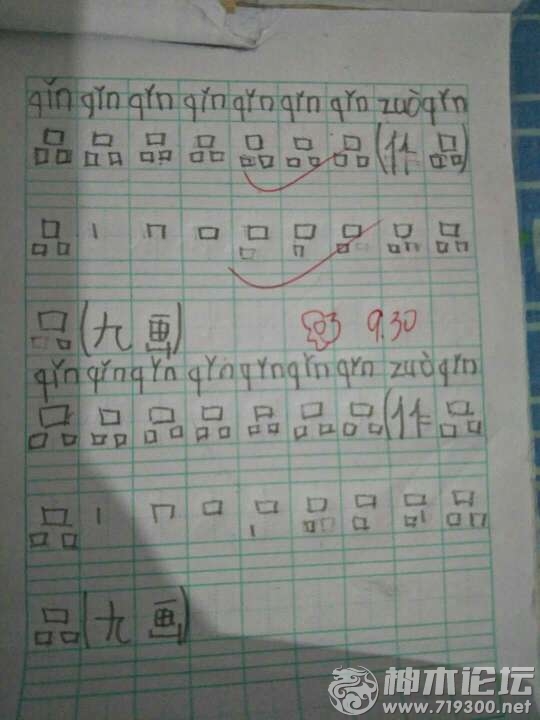 qǐn qǐn qǐn qǐn qǐn qǐn qǐn zuò qǐn
品 品 品 品 品 品 品 (作 品)
品 丨 𠃍 口
品 (九 画)
9.30
qǐn qǐn qǐn qǐn qǐn qǐn qǐn zuò qǐn
品 品 品 品 品 品 品 (作 品
品 丨 𠃍 口 品
品 (九 画)
神木论坛
www.719300.net